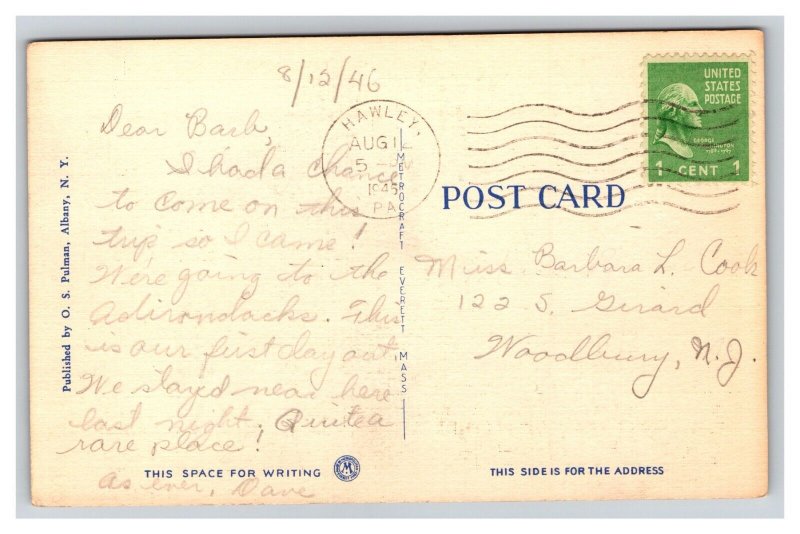 8/12/46
Dear Barb,
I had a chance
to come on this
trip so I came!
We're going to the
Adirondacks. This
is our first day out.
We stayed near here
last night. Quite a
rare place!
as ever, Dave
THIS SPACE FOR WRITING
Published by O. S. Pulman, Albany, N. Y.
METROCRAFT EVERETT MASS
HAWLEY,
AUG 12
5
1946
PA.
UNITED
STATES
POSTAGE
GEORGE
WASHINGTON
1 CENT 1
POST CARD
Miss Barbara L. Cook
122 S. Girard
Woodbury, N.J.
THIS SIDE IS FOR THE ADDRESS